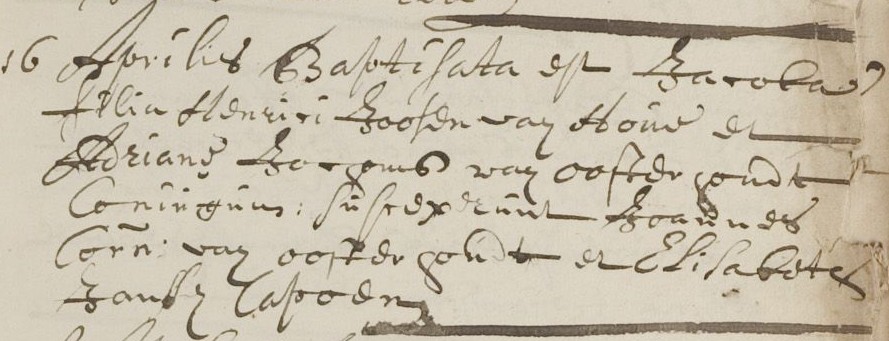 16 Aprilis Baptisata est Jacoba
filia Henrici Joosen van Hove et
Adrianę Jacops van oosterhoudt
Coniugum: susceperunt Joannes
Corn: van oosterhoudt et Elisabeth
Jansen Capoen